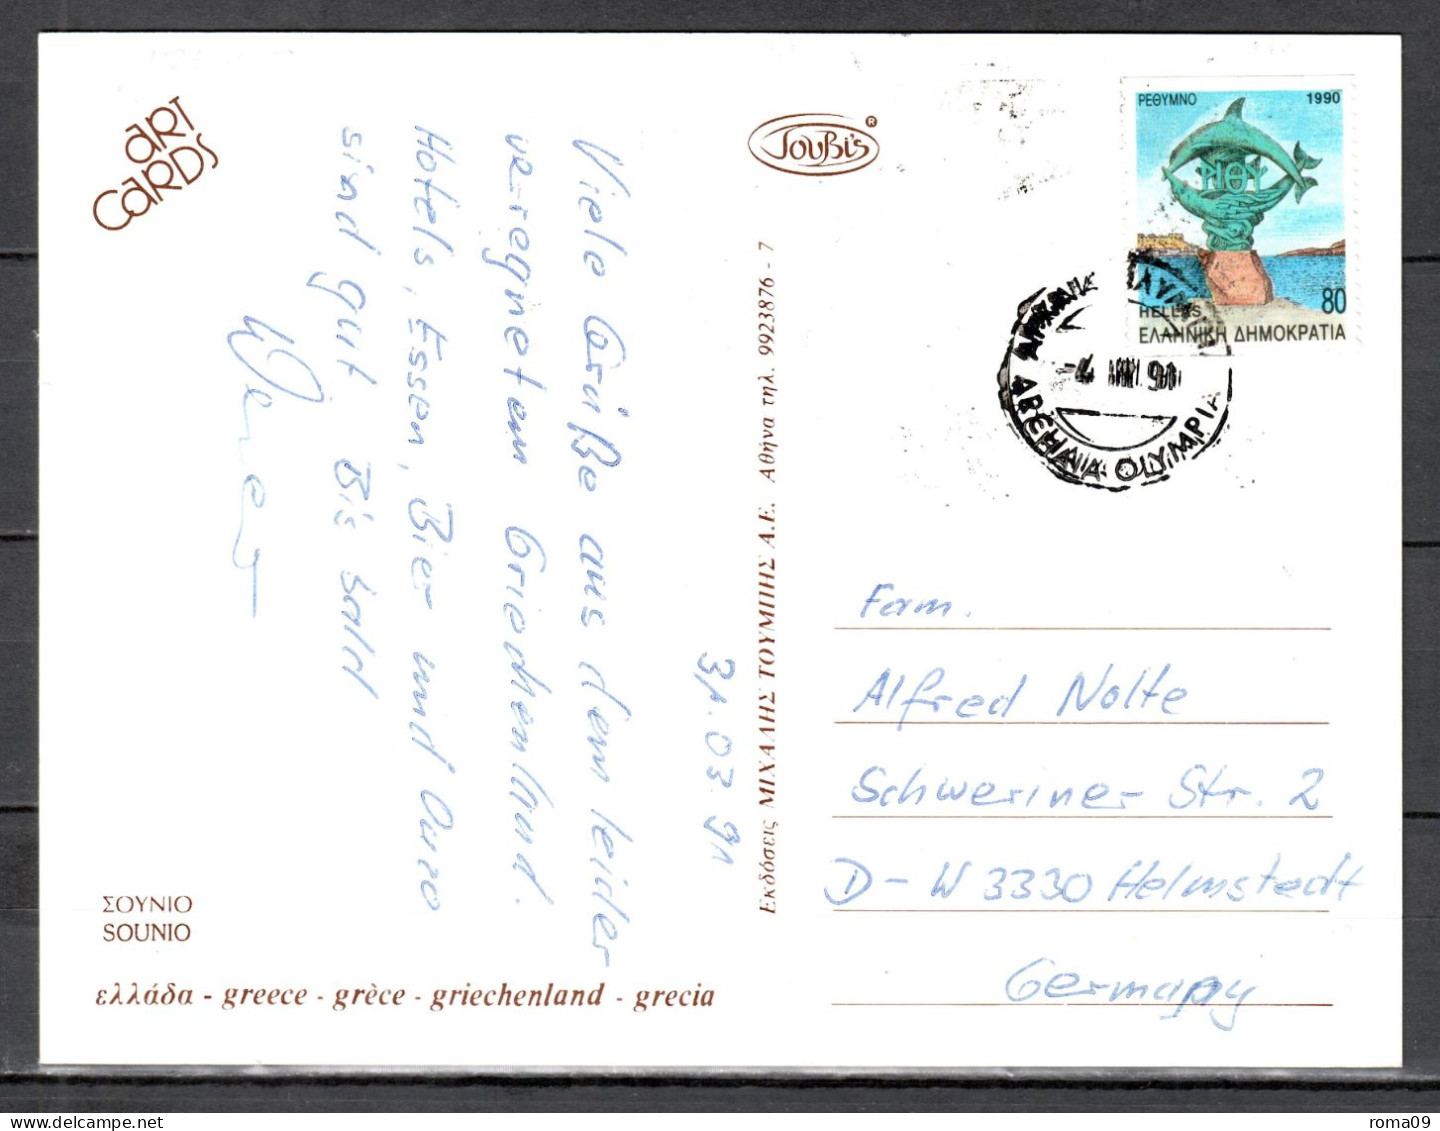 ART
CARDS
Viele Grüße aus dem leider
verregneten Griechenland.
Hotels, Essen, Bier und Ouzo
sind gut Bis bald
31.03.91
ΣΟΥΝΙΟ
SOUNIO
ελλάδα - greece - grèce - griechenland - grecia
Εκδόσεις ΜΙΧΑΛΗΣ ΤΟΥΜΠΗΣ Α.Ε. Αθήνα τηλ. 9923876 - 7
SouBi's ®
ΡΕΘΥΜΝΟ 1990
ΡΙΘΥ
80
HELLAS
ΕΛΛΗΝΙΚΗ ΔΗΜΟΚΡΑΤΙΑ
ΑΡΧΑΙΑ ΟΛΥΜΠΙΑ
-4 91
ARCHAIA OLYMPIA
Fam.
Alfred Nolte
Schweriner Str. 2
D-W 3330 Helmstedt
Germany
roma09